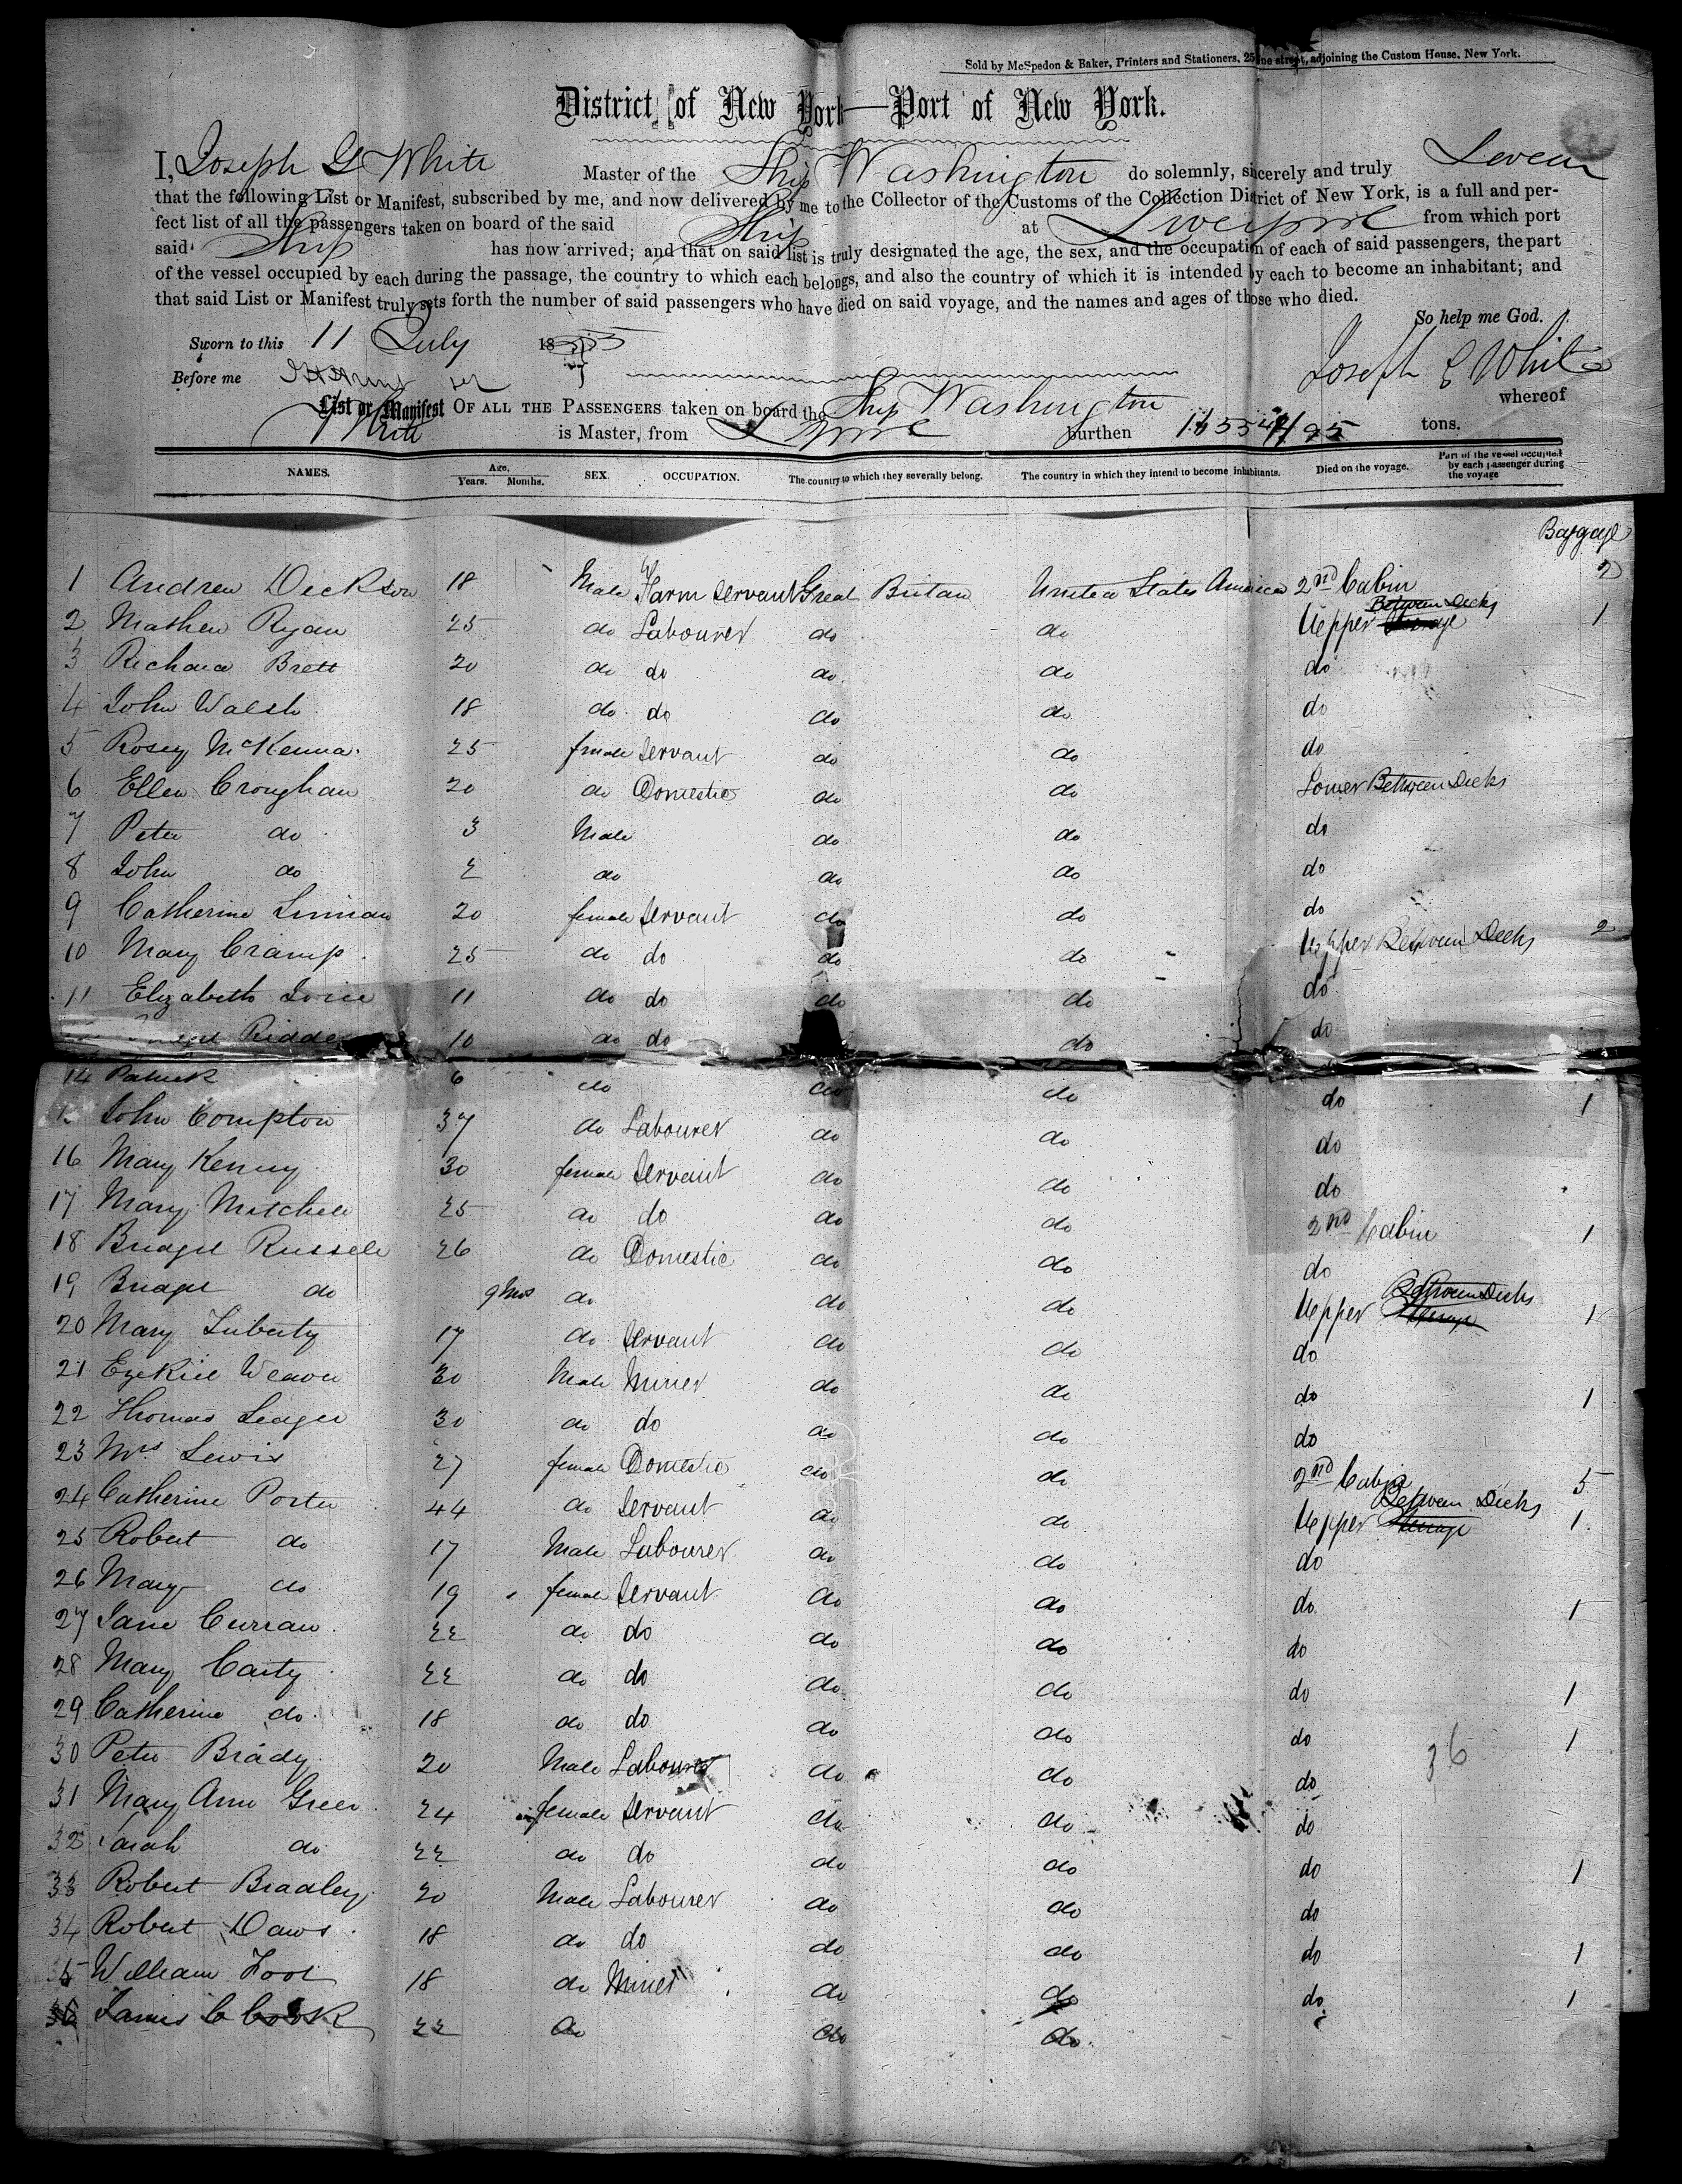 Sold by McSpedon & Baker, Printers and Stationers, 25 ne street, adjoining the Custom House, New York.
District of New York—Port of New York.
I, Joseph G White Master of the Ship Washington do solemnly, sincerely and truly Swear
that the following List or Manifest, subscribed by me, and now delivered by me to the Collector of the Customs of the Collection District of New York, is a full and per-
fect list of all the passengers taken on board of the said Ship at Liverpool from which port
said Ship has now arrived; and that on said list is truly designated the age, the sex, and the occupation of each of said passengers, the part
of the vessel occupied by each during the passage, the country to which each belongs, and also the country of which it is intended by each to become an inhabitant; and
that said List or Manifest truly sets forth the number of said passengers who have died on said voyage, and the names and ages of those who died.
So help me God.
Sworn to this 11 July 1855
Before me
Joseph G White
List or Manifest OF ALL THE PASSENGERS taken on board the Ship Washington whereof
J White is Master, from Liverpool burthen 1655 4/95 tons.
NAMES. Age. Years. Months. SEX. OCCUPATION. The country to which they severally belong. The country in which they intend to become inhabitants. Died on the voyage. Part of the vessel occupied by each passenger during the voyage
Baggage
1 Andrew Dickson 18 Male Farm Servant Great Britain United States America 2nd Cabin 2
2 Mathew Ryan 25 do Labourer do do Upper Between Decks 1
3 Richard Brett 20 do do do do do
4 John Walsh 18 do do do do do
5 Rosey McKenna 25 female Servant do do do
6 Ellen Croughan 20 do Domestic do do Lower Between Decks
7 Peter do 3 Male do do do
8 John do 2 do do do do
9 Catherine Linnan 20 female Servant do do do
10 Mary Cramp 25 do do do do Upper Between Decks 2
11 Elizabeth 11 do do do do do
Ridde 10 do do do do do
14 Patrick 6 do do do do 1
John Compton 37 do Labourer do do do
16 Mary Kenny 30 female Servant do do do
17 Mary Mitchell 25 do do do do 2nd Cabin 1
18 Bridget Russell 26 do Domestic do do do
19 Bridget do 9 Mos do do do Upper Between Decks 1
20 Mary Luberty 17 do Servant do do do
21 Ezekiel Weaver 30 Male Miner do do do 1
22 Thomas Seager 30 do do do do do
23 Mrs Lewis 27 female Domestic do do 2nd Cabin 5
24 Catherine Porter 44 do Servant do do Upper Between Decks 1
25 Robert do 17 Male Labourer do do do
26 Mary do 19 female Servant do do do 1
27 Jane Curran 22 do do do do do
28 Mary Carty 22 do do do do do 1
29 Catherine do 18 do do do do do 1
30 Peter Brady 20 Male Labourer do do do 36
31 Mary Ann Green 24 female Servant do do do
32 Sarah do 22 do do do do do 1
33 Robert Bradley 20 Male Labourer do do do
34 Robert Daws 18 do do do do do 1
35 William Foot 18 do Miner do do do 1
36 James C Cook 22 do do do